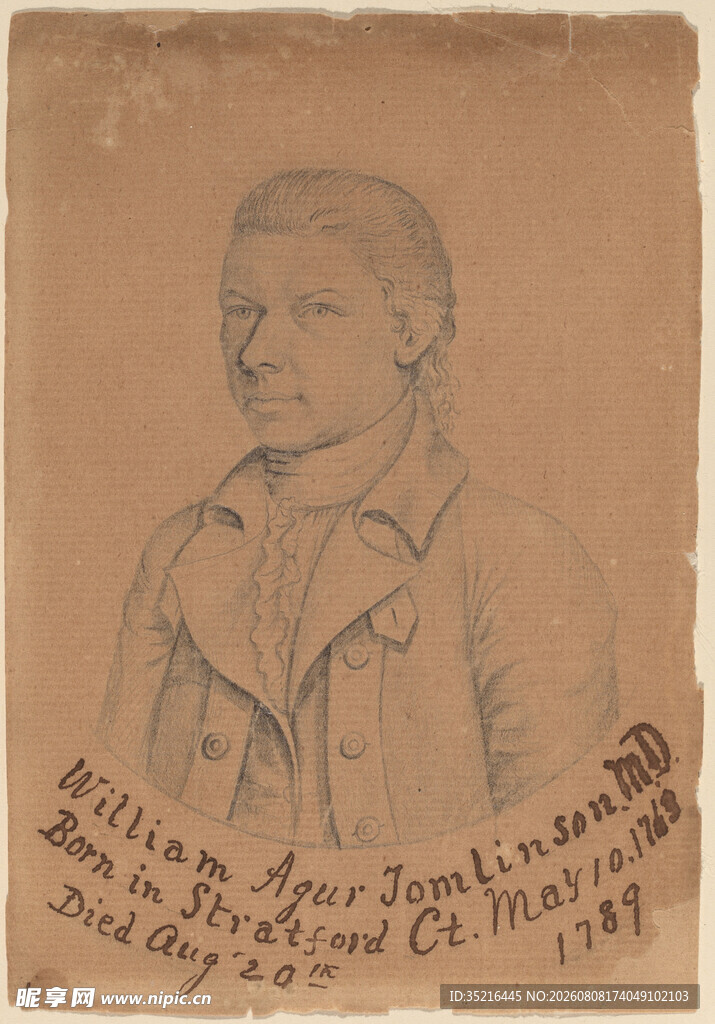 William Agur Tomlinson. MD.
Born in Stratford Ct. May 10. 1763
Died Aug 20th 1789
昵享网 www.nipic.cn
ID:35216445 NO:20260808174049102103